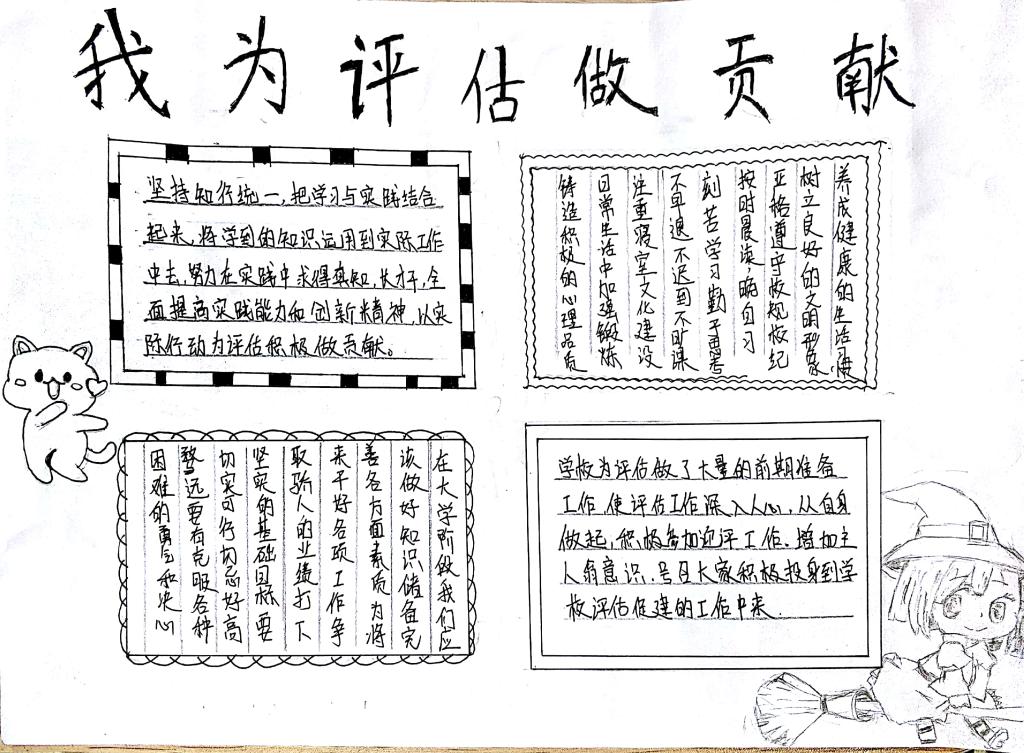 我为评估做贡献
坚持知行统一，把学习与实践结合
起来，将学到的知识运用到实际工作
中去，努力在实践中求得真知，长才干，全
面提高实践能力和创新精神，以实
际行动为评估积极做贡献。
养成健康的生活习惯
树立良好的文明形象，
严格遵守校规校纪
按时晨读，晚自习
刻苦学习勤于思考
不早退不迟到不旷课
注重寝室文化建设
日常生活中加强锻炼
铸造积极的心理品质
在大学阶做我们应
该做好知识储备完
善各方面素质为将
来干好各项工作争
取骄人的业绩打下
坚实的基础目标要
切实可行切忌好高
骛远要有克服各种
困难的勇气和决心
学校为评估做了大量的前期准备
工作，使评估工作深入人心，从自身
做起，积极参加迎评工作，增加主
人翁意识，号召大家积极投身到学
校评估促建的工作中来.